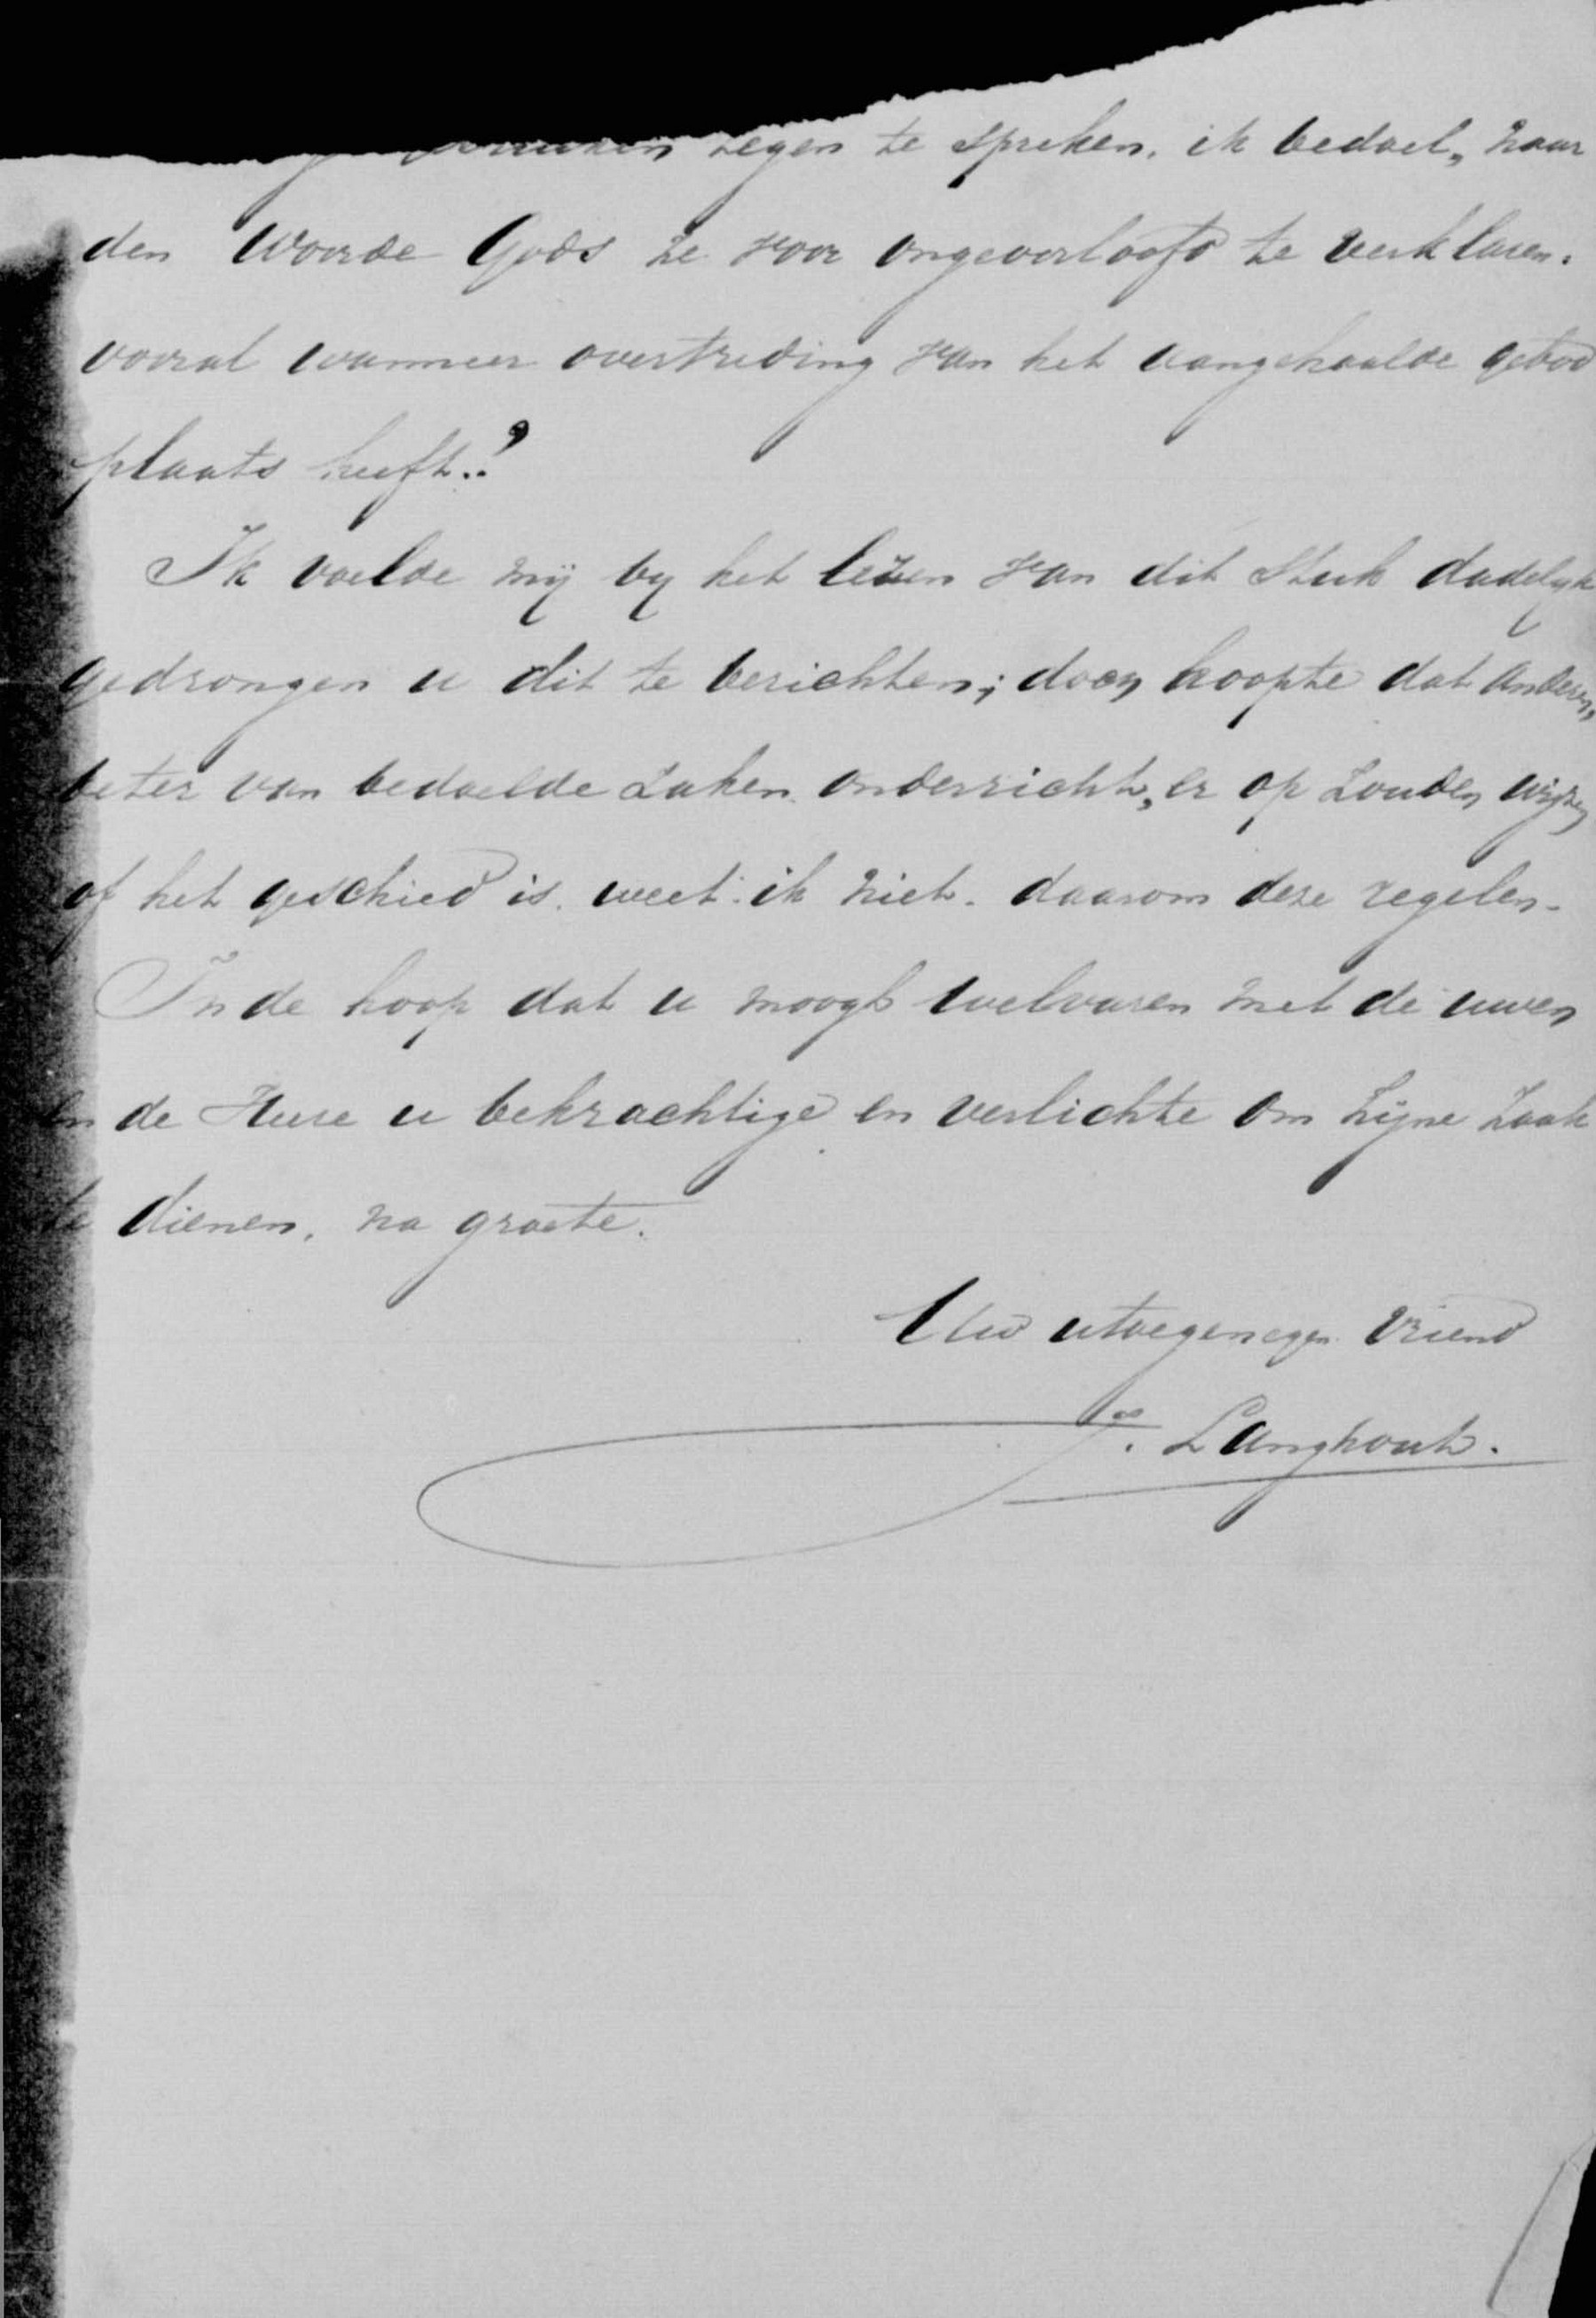 tegen te spreken. ik bedoel, naar
den Woorde Gods ze voor ongeoorloofd te verklaren.
vooral wanneer overtreding van het aangehaalde gebod
plaats heeft.?
Ik voelde mij by het lezen van dit Stuk dadelyk
gedrongen u dit te berichten; doch hoopte dat anderen,
beter van bedoelde Zaken onderricht, er op Zouden wijzen
of het geschied is. weet ik niet. daarom deze regelen.
In de hoop dat u moogt welvaren met de uwen
en de Heere u bekrachtige en verlichte om Zijne Zaak
te dienen, na groete.
Uw toegenegen Vriend
Langhout.